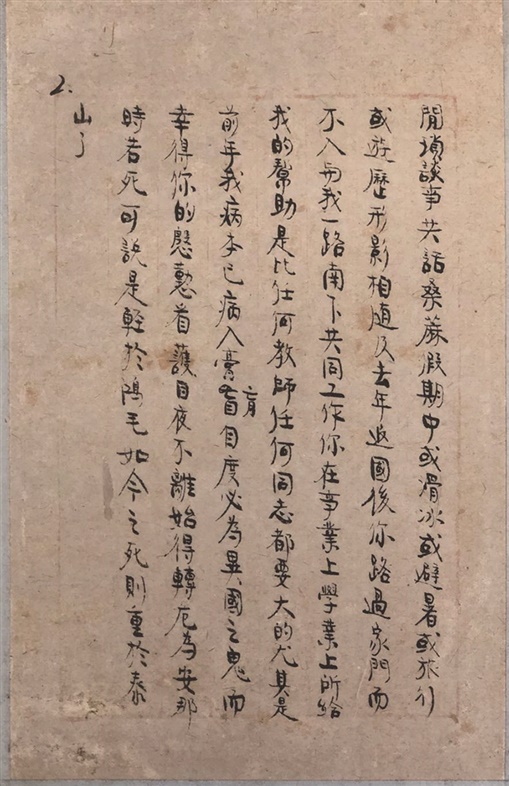 閒瑣談爭共話桑蔴假期中或滑冰或避暑或旅行
或遊歷形影相随及去年返國後你路過家門而
不入与我一路南下共同工作你在事業上學業上所給
我的幫助是比任何教師任何同志都要大的尤其是
前年我病本已病入膏盲肓自度必為異國之鬼而
幸得你的慇懃看護日夜不離始得轉危為安那
時若死可說是輕於鴻毛如今之死則重於泰
山了
2.